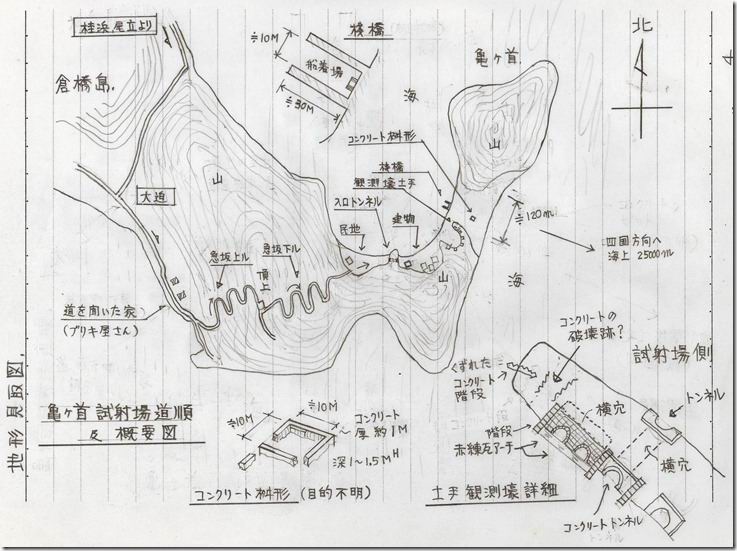 桂浜尾立より
倉橋島.
≒10M
桟橋
船着場
≒30M
海
亀ヶ首
北
4
山
コンクリート桝形
桟橋
観測壕土手
入口トンネル
建物
民地
≒120m
四国方向へ
海上 25000m
海
山
大迫
山
急坂上ル
急坂下ル
頂上
道を聞いた家
(ブリキ屋さん)
地形見取図.
亀ヶ首試射場道順
& 概要図
≒10M
≒10M
コンクリート
厚約1M
深1~1.5MH
コンクリート桝形 (目的不明)
コンクリートの
破壊跡?
試射場側
くずれた
コンクリート
階段
トンネル
横穴
階段
赤練瓦アーチ
横穴
コンクリートトンネル
トンネル
土手観測壕詳細